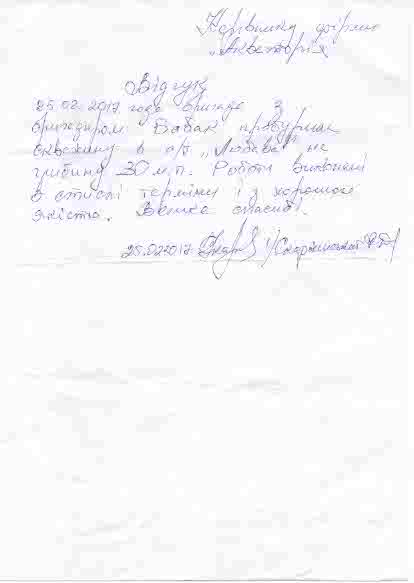 Керівнику фірми
"Акваторія"
Відгук
25.02.2017 года бригада з
бригадиром Бабак пробурили
скважину в с/т "Любава" на
глибину 30 м.п. Роботи виконані
в стислі терміни і з хорошою
якістю. Велике спасибі.
25.02.2017